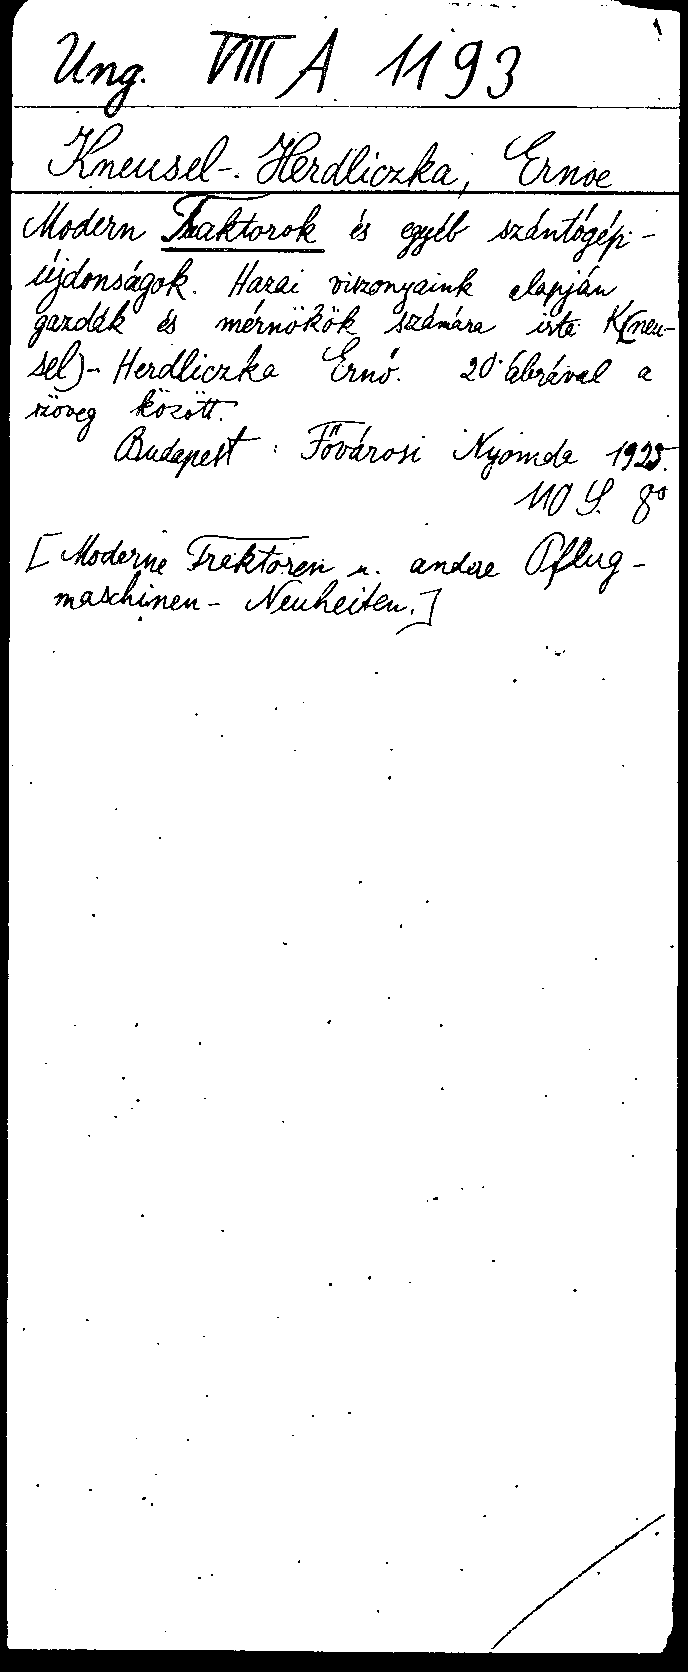 Ung. VIII A 1193
Kneusel-Herdliczka, Ernoe
Modern Traktorok és egyéb szántógépi-
újdonságok. Hazai viszonyaink alapján
gazdák és mérnökök számára irta K[neu-
sel]-Herdliczka Ernő. 20 ábrával a
szöveg között.
Budapest : Fővárosi Nyomda 1925.
110 S. 8°
[Moderne Traktoren u. andere Pflug-
maschinen-Neuheiten.]